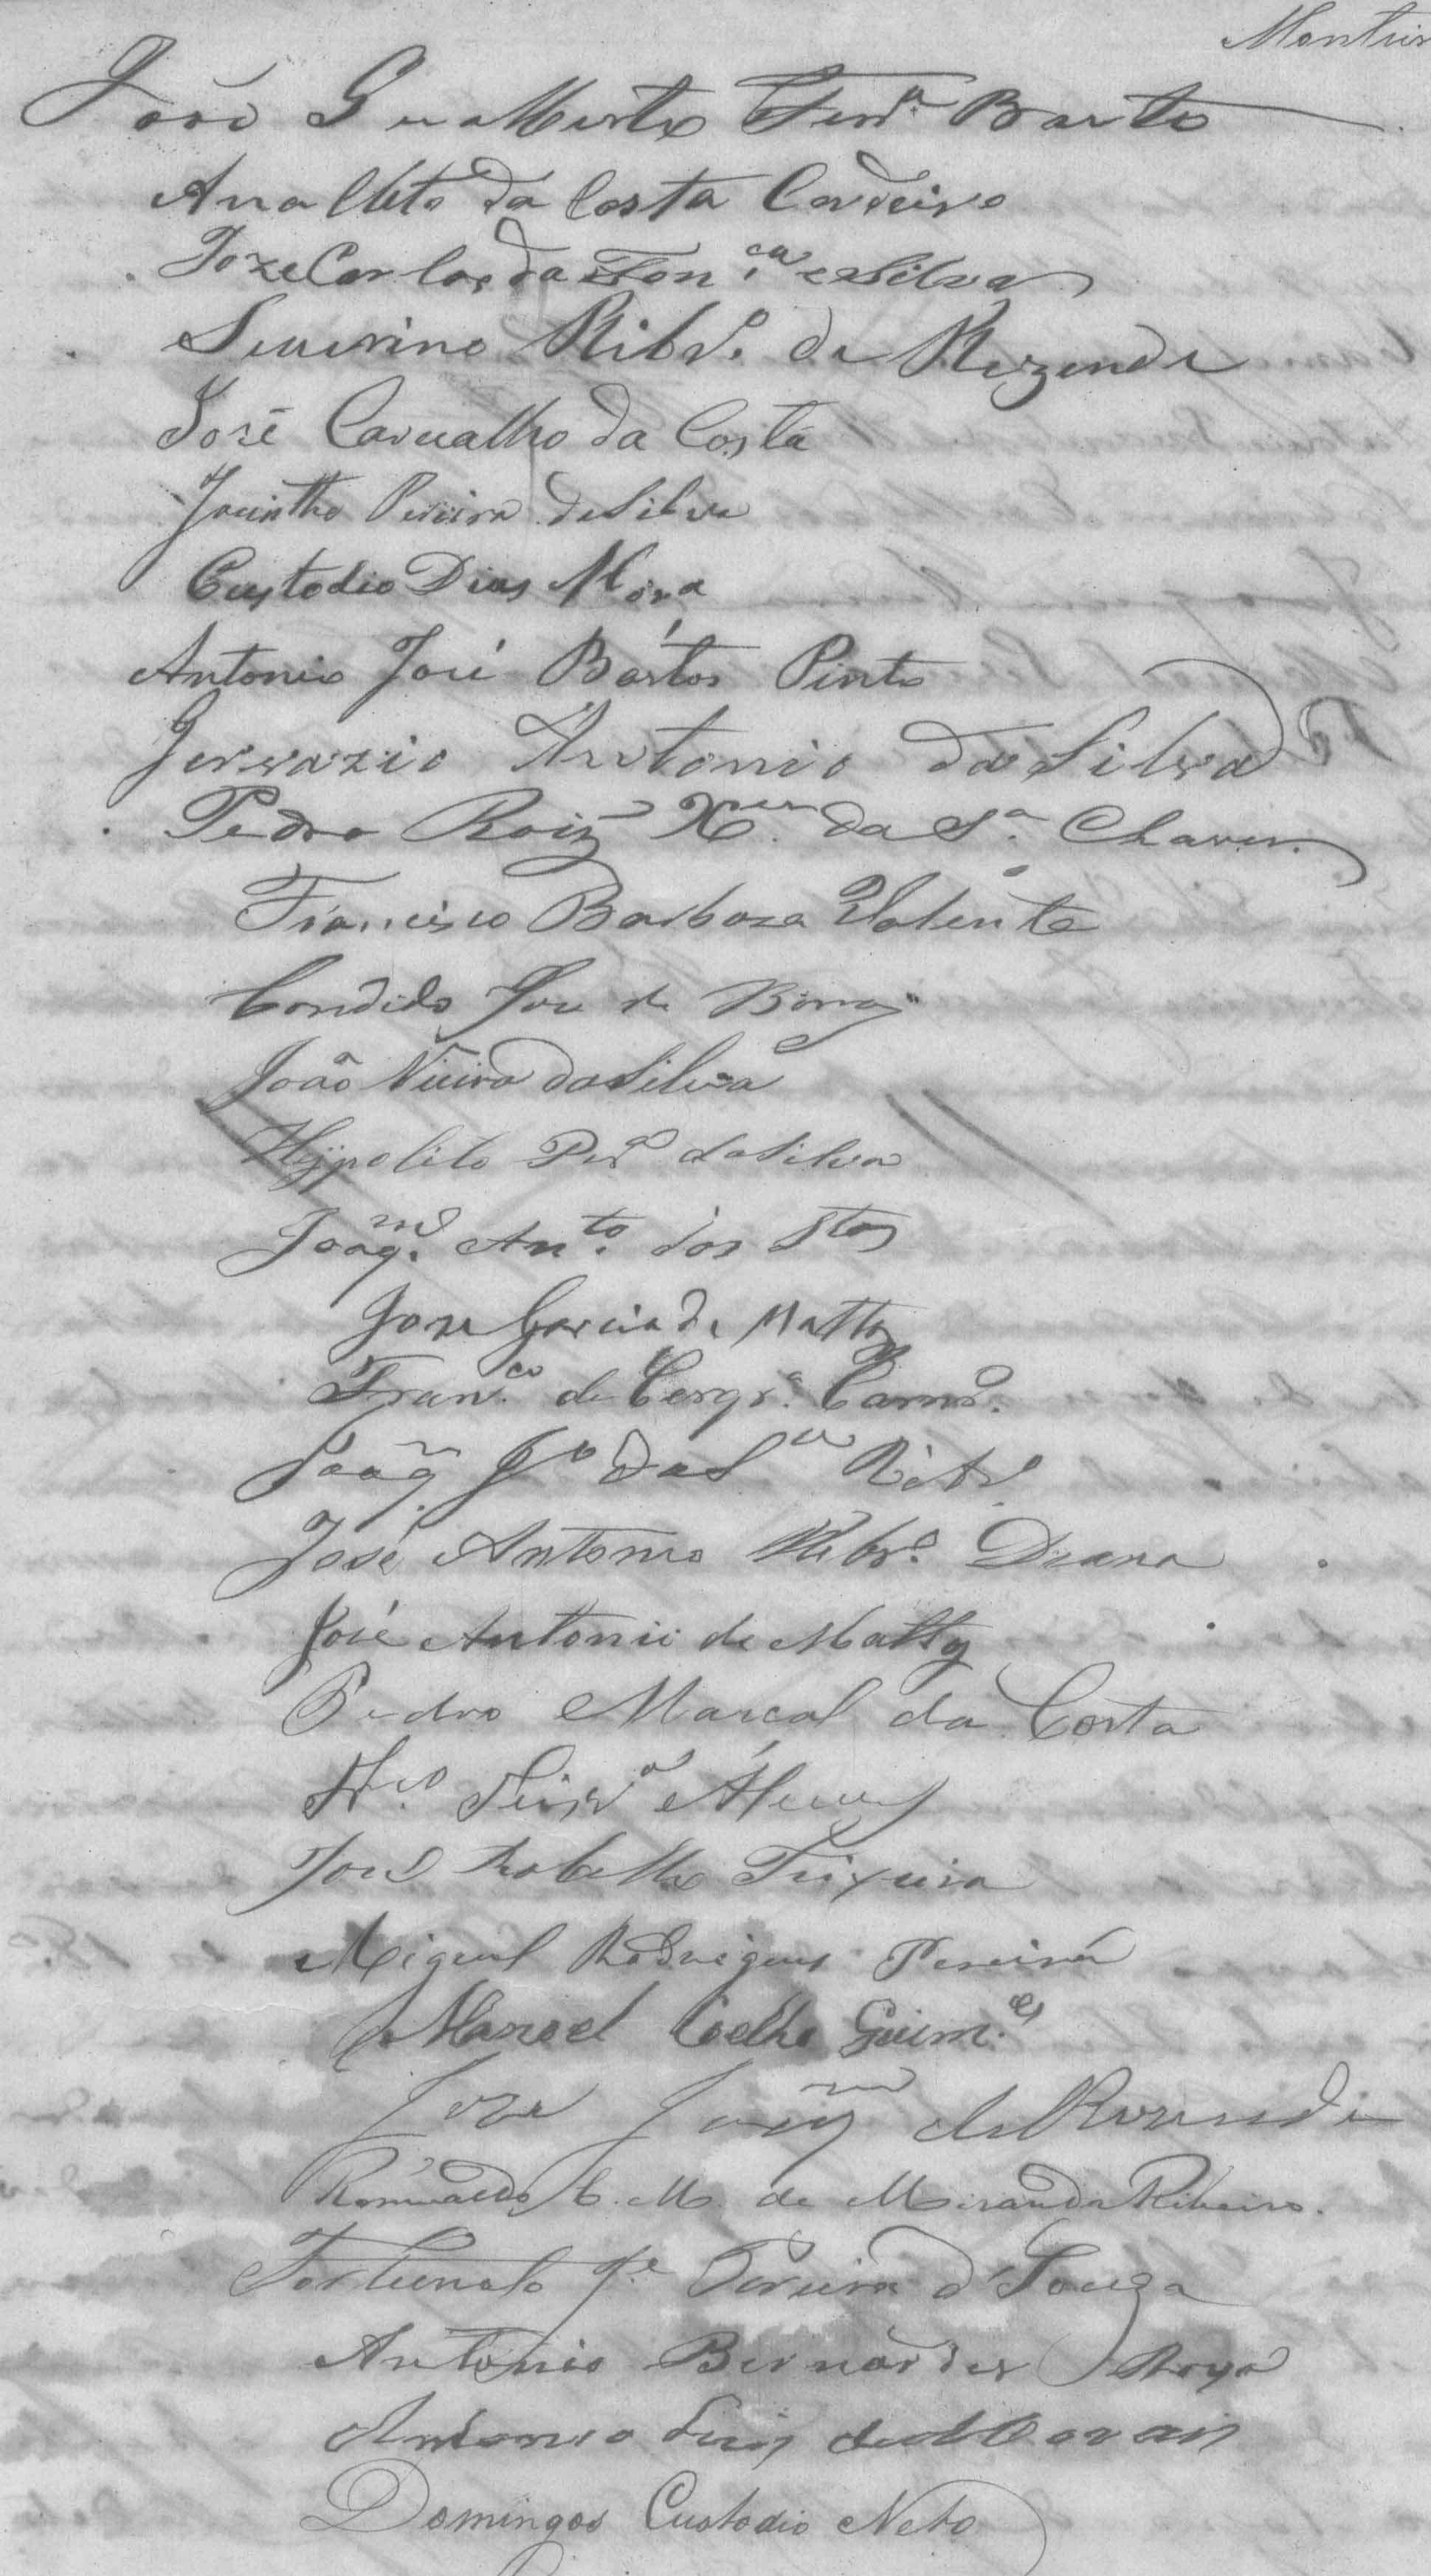 João Gualberto Ferr.ª Basto
Anacleto da Costa Cordeiro
Joze Carlos da Fon.ca e Silva
Severino Ribr.o de Rezende
José Carvalho da Costa
Jacintho Pereira da Silva
Custodio Dias Mor.a
Antonio José Bastos Pinto
Gervazio Antonio da Silva
Pedro Roiz X.er da S.a Chaves
Francisco Barboza Valente
Candido José de
João Vieira da Silva
Hyppolito Per.a da Silva
Joaq.m Ant.to dos Stos
Jose Garcia de Mattos
Fran.co de Cerqr.a Carnr.o
Joaq.m J.e da S.a Ribr.o
José Antonio Ribr.o Diana
José Antonio de Mattos
Pedro Marçal da Costa
Fr.co Alves
José Rabello Teixeira
Miguel Rodrigues Pereira
Manoel Coelho Guim.es
Joze Joaq.m de Rezende
Romualdo C. M. de Miranda Ribeiro.
Fortunato J.e Pereira d'Souza
Antonio Bernardes
Antonio Luis de Morais
Domingos Custodio Neto